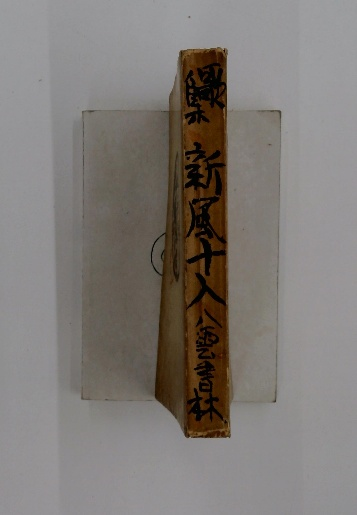 歌集
新風十人
八雲書林